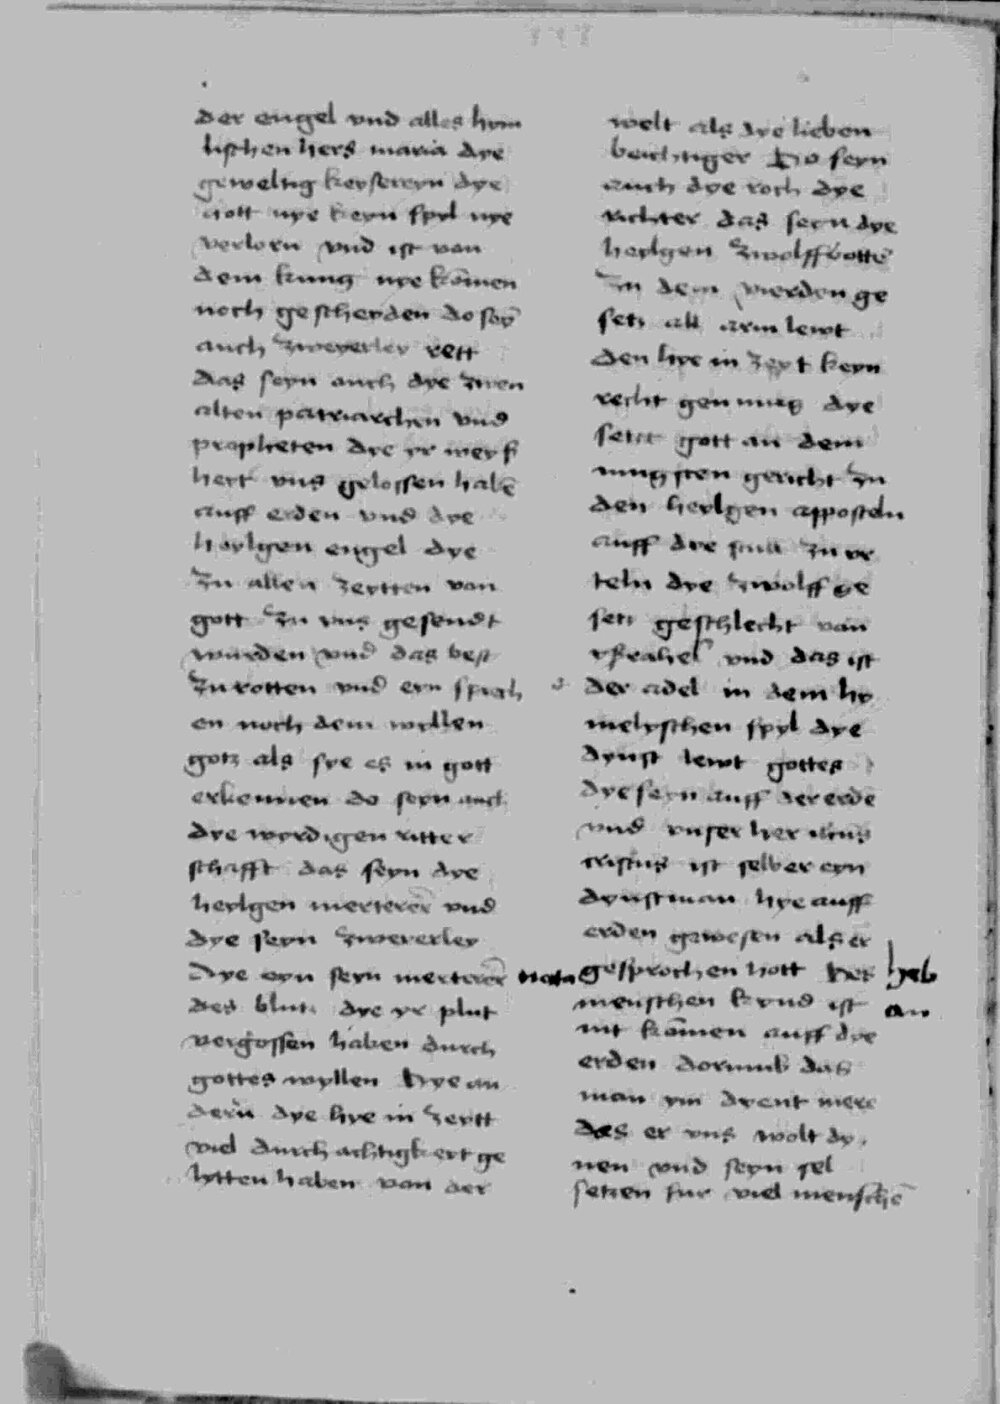 der engel vnd alles hym
lischen hers maria dye
geweltig keysereyn dye
gott nye keyn spyl nye
verlorn vnd ist von
dem kunig nye kōmen
noch gescheyden do seȳ
auch zweyerley rett
das seyn auch dye zwen
alten patriarchen vnd
propheten dye yr weyß
heyt vns gelossen habē
auff erden vnd dye
heylgen engel dye
zu allen zeytten von
gott zu vns gesendt
wurden vnd das best
zu rotten vnd eyn sprech
en noch dem wyllen
gotz als sye es in gott
erkennen do seyn auch
dye wyrdigen ritter
schafft das seyn dye
heylgen mertererr vnd
dye seyn zweyerley
dye eyn seyn mertererr
des blutz dye yr plut
vergossen haben durch
gottes wyllen Dye an
dern dye hye in zeytt
viel durchachtigkeyt ge
lytten haben von der
welt als dye lieben
beichtiger Do seyn
auch dye roch dye
richter das seyn dye
heylgen zwolffbottē
Zu dem vierden ge
setz all arm lewt
den hye in zeyt keyn
recht genung dye
setzt gott an dem
iungsten gericht zu
den heylgen apposteln
auff dye stull zu vr
teln dye zwolff ge
setz geschlecht von
ysrahel vnd das ist
der adel in dem hy
melyschen spyl dye
dynst lewt gottes
dye seyn auff der erde
vnd vnser her ihūs
cristus ist selber eyn
dynstman hye auff
erden gewesen als er
nota gesprochen hott Des heb
menschen kynd ist an
nit kōmen auff dye
erden dorumb das
man ym dyent mere
das er vns wolt dy
nen vnd seyn sel
setzen fur viel menschē